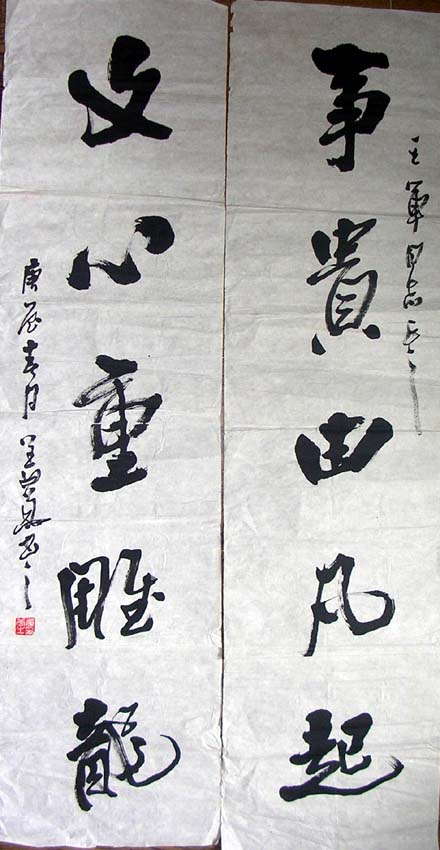 事貴由凡起
王軍同志正之
文心重雕龍
庚辰春月